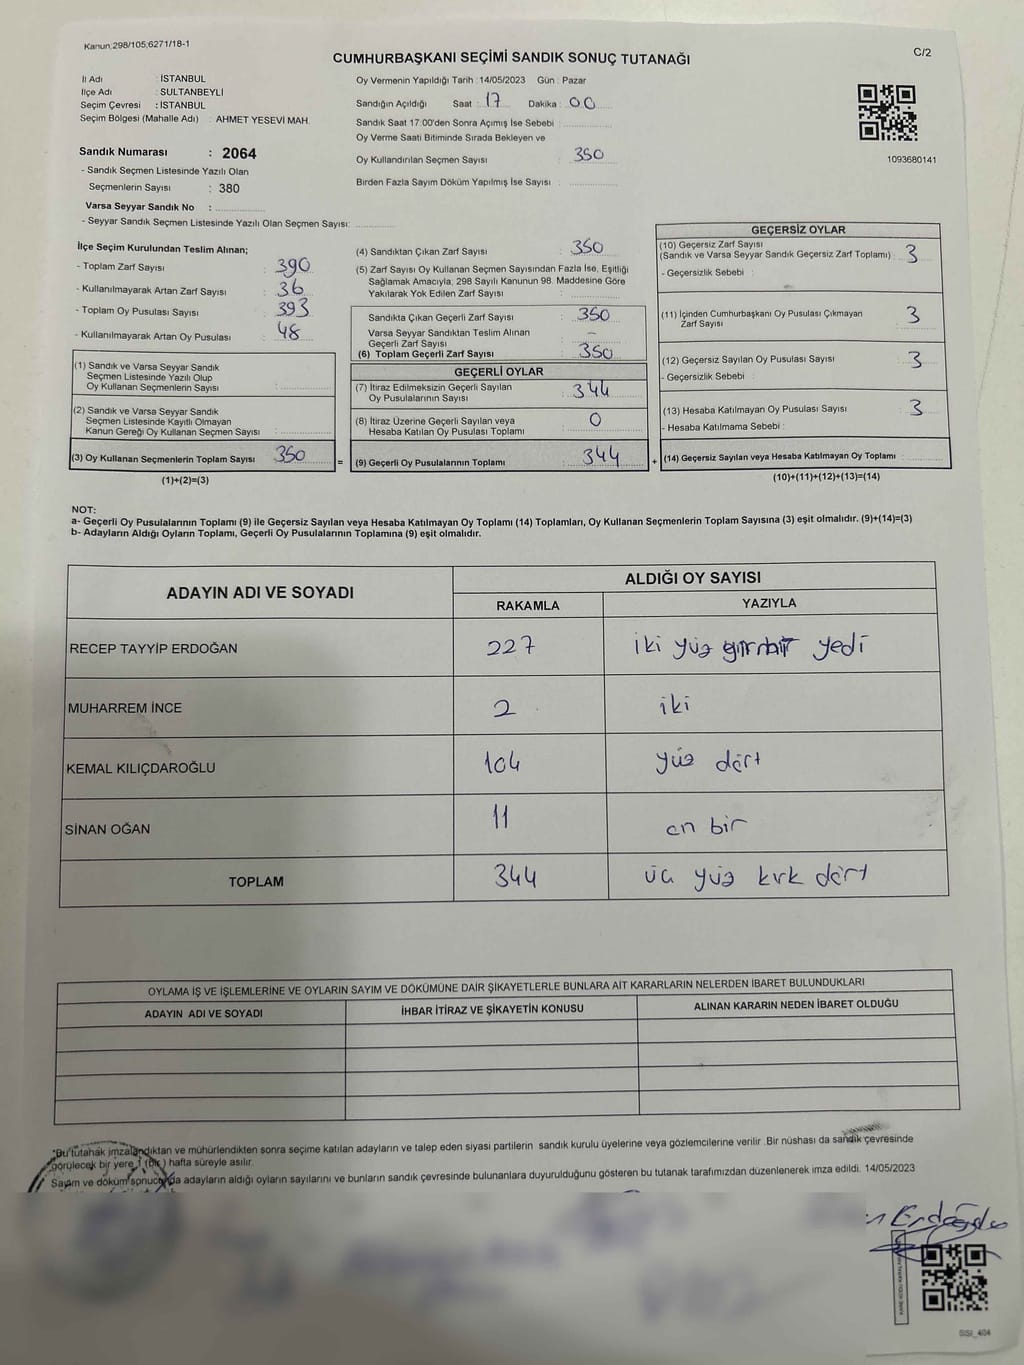 Kanun:298/105;6271/18-1
C/2
CUMHURBAŞKANI SEÇİMİ SANDIK SONUÇ TUTANAĞI
İl Adı : İSTANBUL
İlçe Adı : SULTANBEYLİ
Seçim Çevresi : İSTANBUL
Seçim Bölgesi (Mahalle Adı) : AHMET YESEVİ MAH.
Sandık Numarası : 2064
- Sandık Seçmen Listesinde Yazılı Olan
Seçmenlerin Sayısı : 380
Varsa Seyyar Sandık No :
- Seyyar Sandık Seçmen Listesinde Yazılı Olan Seçmen Sayısı:
Oy Vermenin Yapıldığı Tarih : 14/05/2023 Gün : Pazar
Sandığın Açıldığı Saat : 17 Dakika : 00
Sandık Saat 17:00'den Sonra Açımış İse Sebebi :
Oy Verme Saati Bitiminde Sırada Bekleyen ve
Oy Kullandırılan Seçmen Sayısı : 350
Birden Fazla Sayım Döküm Yapılmış İse Sayısı :
1093680141
İlçe Seçim Kurulundan Teslim Alınan;
- Toplam Zarf Sayısı : 390
- Kullanılmayarak Artan Zarf Sayısı : 36
- Toplam Oy Pusulası Sayısı : 393
- Kullanılmayarak Artan Oy Pusulası : 48
(1) Sandık ve Varsa Seyyar Sandık
Seçmen Listesinde Yazılı Olup
Oy Kullanan Seçmenlerin Sayısı :
(2) Sandık ve Varsa Seyyar Sandık
Seçmen Listesinde Kayıtlı Olmayan
Kanun Gereği Oy Kullanan Seçmen Sayısı :
(3) Oy Kullanan Seçmenlerin Toplam Sayısı : 350
(1)+(2)=(3)
(4) Sandıktan Çıkan Zarf Sayısı : 350
(5) Zarf Sayısı Oy Kullanan Seçmen Sayısından Fazla İse, Eşitliği
Sağlamak Amacıyla, 298 Sayılı Kanunun 98. Maddesine Göre
Yakılarak Yok Edilen Zarf Sayısı :
Sandıkta Çıkan Geçerli Zarf Sayısı : 350
Varsa Seyyar Sandıktan Teslim Alınan
Geçerli Zarf Sayısı : –
(6) Toplam Geçerli Zarf Sayısı : 350
GEÇERLİ OYLAR
(7) İtiraz Edilmeksizin Geçerli Sayılan
Oy Pusulalarının Sayısı : 344
(8) İtiraz Üzerine Geçerli Sayılan veya
Hesaba Katılan Oy Pusulası Toplamı : 0
= (9) Geçerli Oy Pusulalarının Toplamı : 344
GEÇERSİZ OYLAR
(10) Geçersiz Zarf Sayısı
(Sandık ve Varsa Seyyar Sandık Geçersiz Zarf Toplamı) : 3
- Geçersizlik Sebebi :
(11) İçinden Cumhurbaşkanı Oy Pusulası Çıkmayan
Zarf Sayısı : 3
(12) Geçersiz Sayılan Oy Pusulası Sayısı : 3
- Geçersizlik Sebebi :
(13) Hesaba Katılmayan Oy Pusulası Sayısı : 3
- Hesaba Katılmama Sebebi :
+ (14) Geçersiz Sayılan veya Hesaba Katılmayan Oy Toplamı :
(10)+(11)+(12)+(13)=(14)
NOT:
a- Geçerli Oy Pusulalarının Toplamı (9) ile Geçersiz Sayılan veya Hesaba Katılmayan Oy Toplamı (14) Toplamları, Oy Kullanan Seçmenlerin Toplam Sayısına (3) eşit olmalıdır. (9)+(14)=(3)
b- Adayların Aldığı Oyların Toplamı, Geçerli Oy Pusulalarının Toplamına (9) eşit olmalıdır.
ADAYIN ADI VE SOYADI
ALDIĞI OY SAYISI
RAKAMLA YAZIYLA
RECEP TAYYİP ERDOĞAN 227 iki yüz yedi
MUHARREM İNCE 2 iki
KEMAL KILIÇDAROĞLU 104 yüz dört
SİNAN OĞAN 11 on bir
TOPLAM 344 üç yüz kırk dört
OYLAMA İŞ VE İŞLEMLERİNE VE OYLARIN SAYIM VE DÖKÜMÜNE DAİR ŞİKAYETLERLE BUNLARA AİT KARARLARIN NELERDEN İBARET BULUNDUKLARI
ADAYIN ADI VE SOYADI İHBAR İTİRAZ VE ŞİKAYETİN KONUSU ALINAN KARARIN NEDEN İBARET OLDUĞU
"Bu tutanak imzalandıktan ve mühürlendikten sonra seçime katılan adayların ve talep eden siyasi partilerin sandık kurulu üyelerine veya gözlemcilerine verilir .Bir nüshası da sandık çevresinde
görülecek bir yere 1 (bir) hafta süreyle asılır.
Sayım ve döküm sonucunda adayların aldığı oyların sayılarını ve bunların sandık çevresinde bulunanlara duyurulduğunu gösteren bu tutanak tarafımızdan düzenlenerek imza edildi. 14/05/2023
SISI_404